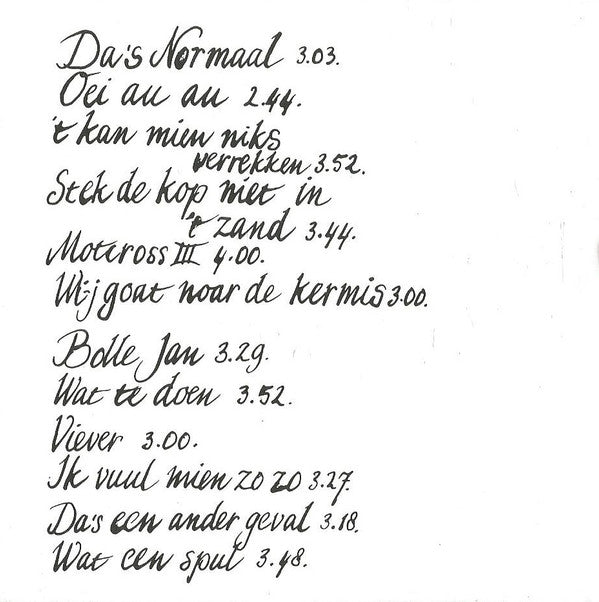 Da's Normaal 3.03.
Oei au au 2.44.
't kan mien niks
verrekken 3.52.
Stek de kop niet in
't zand 3.44.
Motcross III 4.00.
Wij goat noar de kermis 3.00.
Bolle Jan 3.29.
Wat te doen 3.52.
Viever 3.00.
Ik vuul mien zo zo 3.27.
Da's een ander geval 3.18.
Wat een spul 3.48.